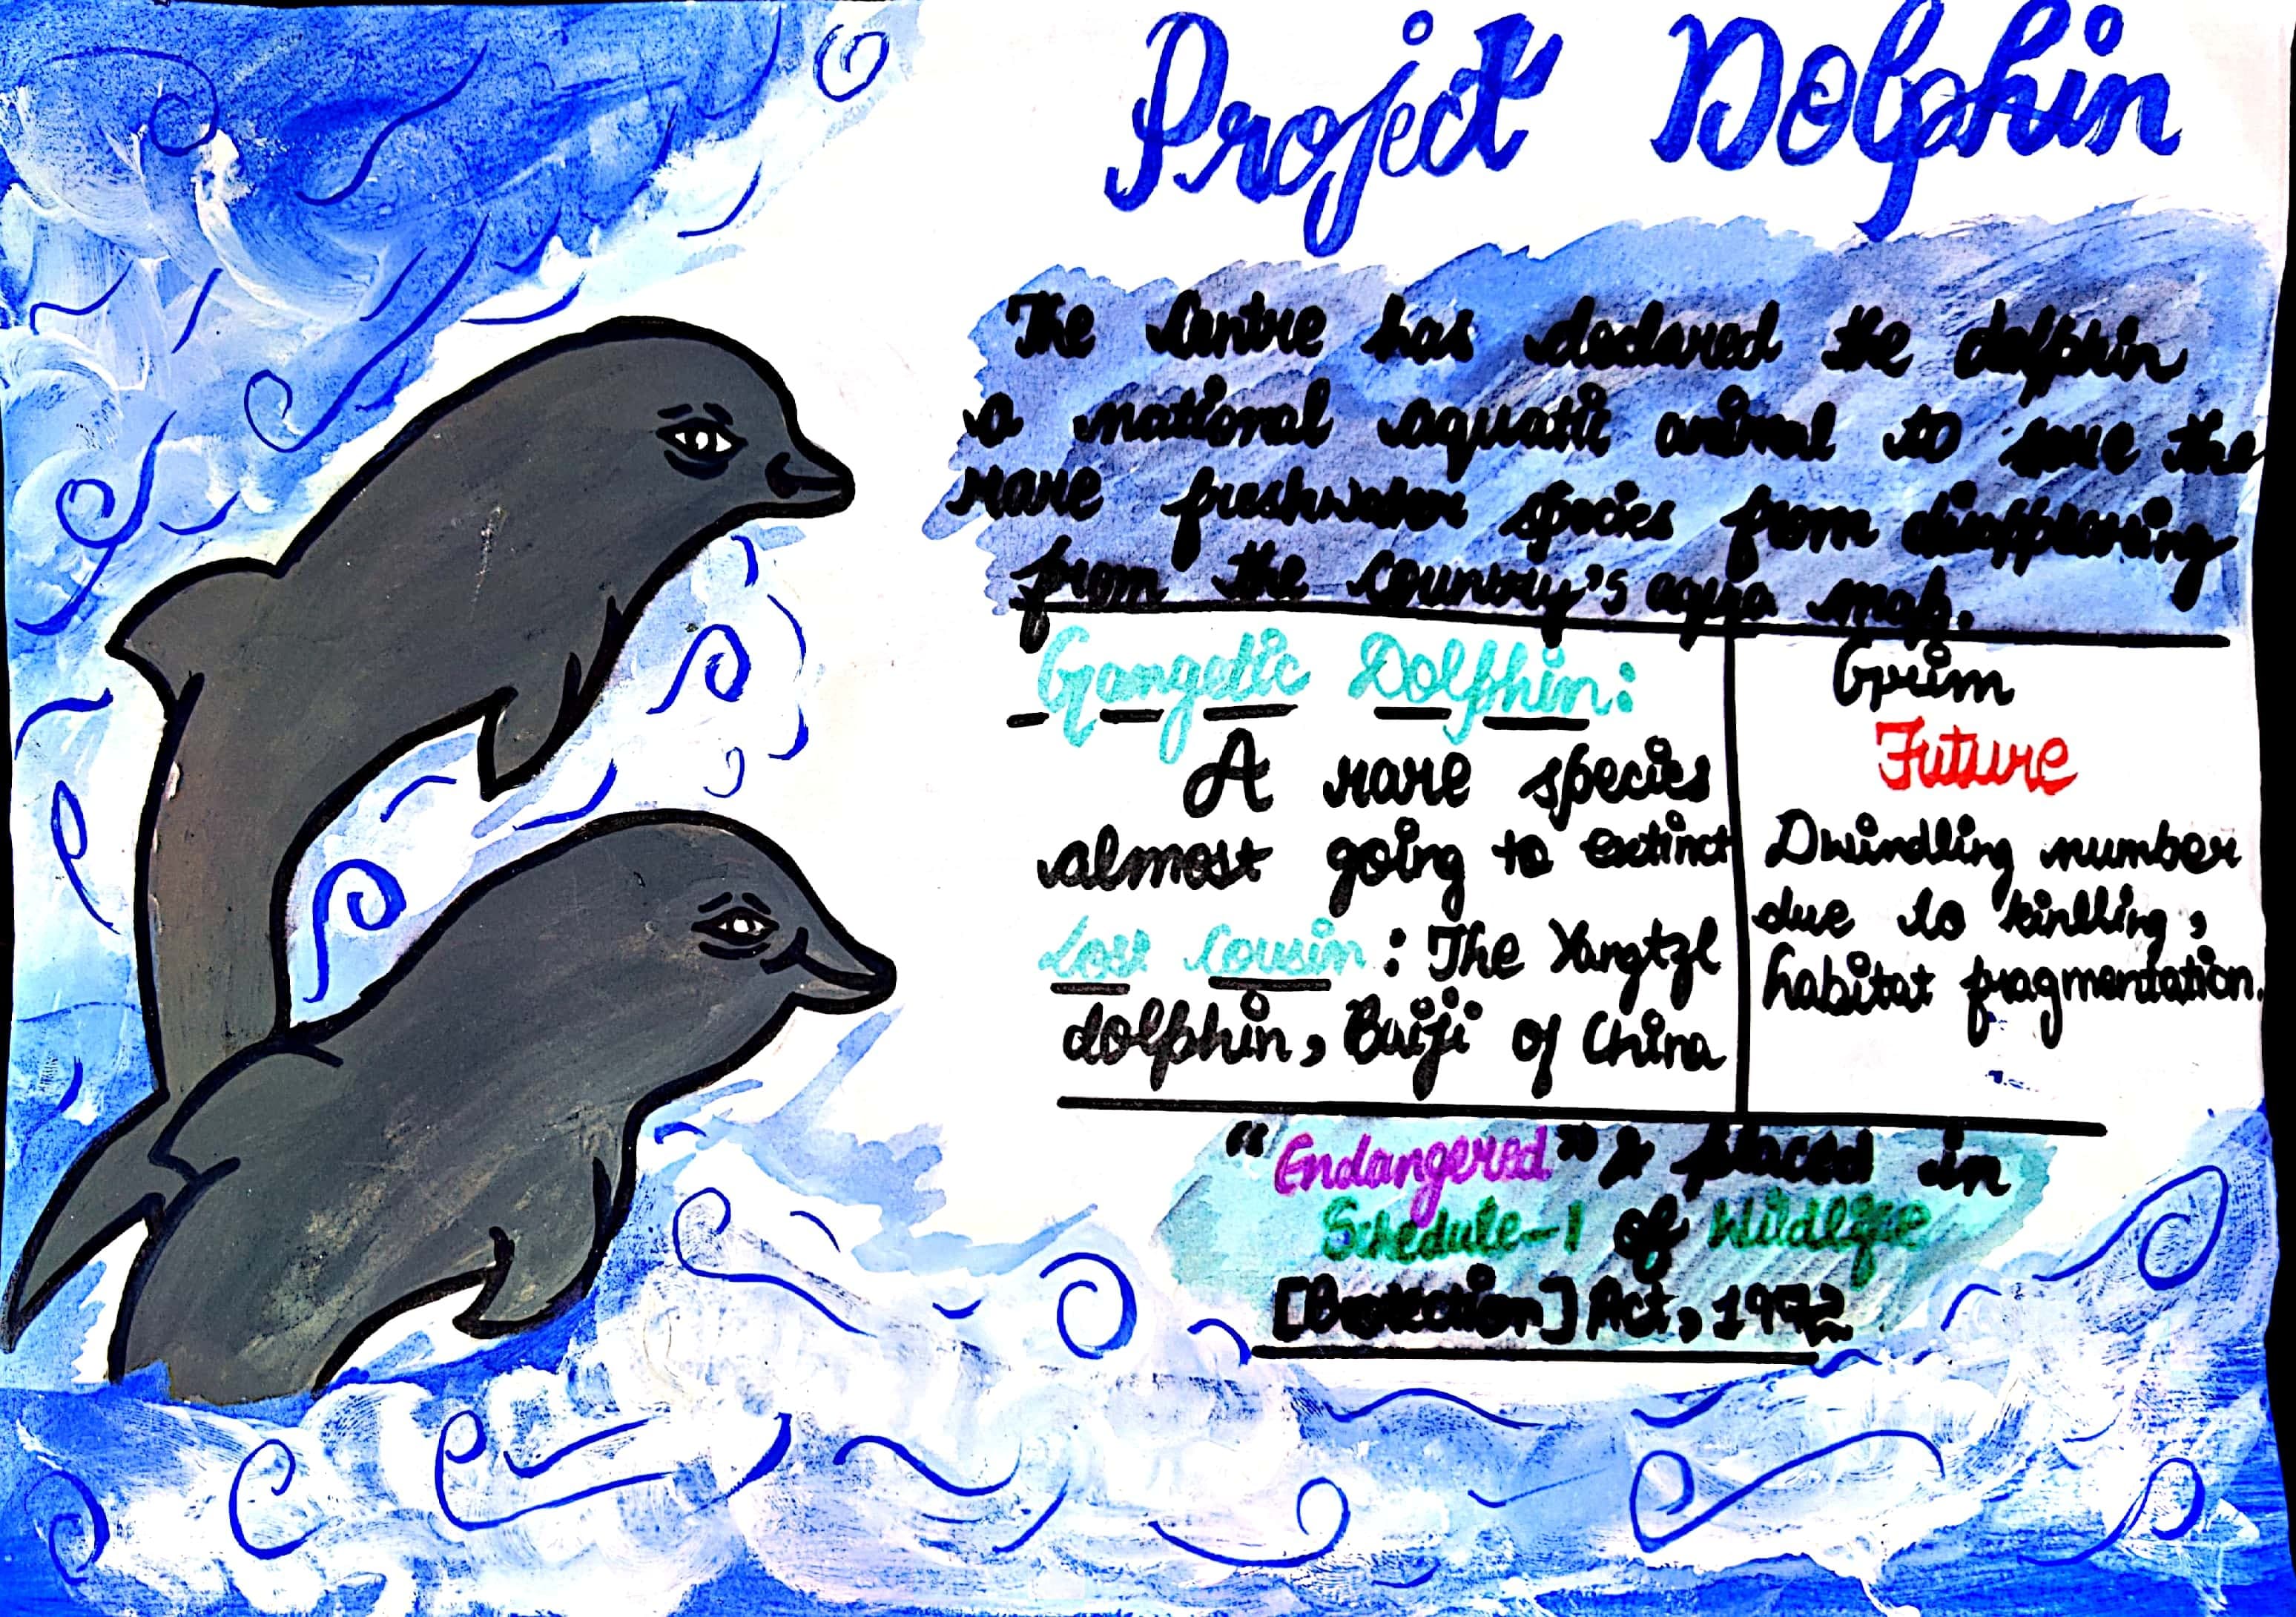 Project Dolphin
The Centre has declared the dolphin
a national aquatic animal to save the
rare freshwater species from disappearing
from the country's aqua map.
Gangetic Dolphin:
A rare species
almost going to extinct
Lost Cousin : The Yangtze
dolphin, Baiji of China
Grim
Future
Dwindling number
due to kinlling,
habitat fragmentation.
"Endangered" & placed in
Schedule-1 of Wildlife
[Protection] Act, 1972